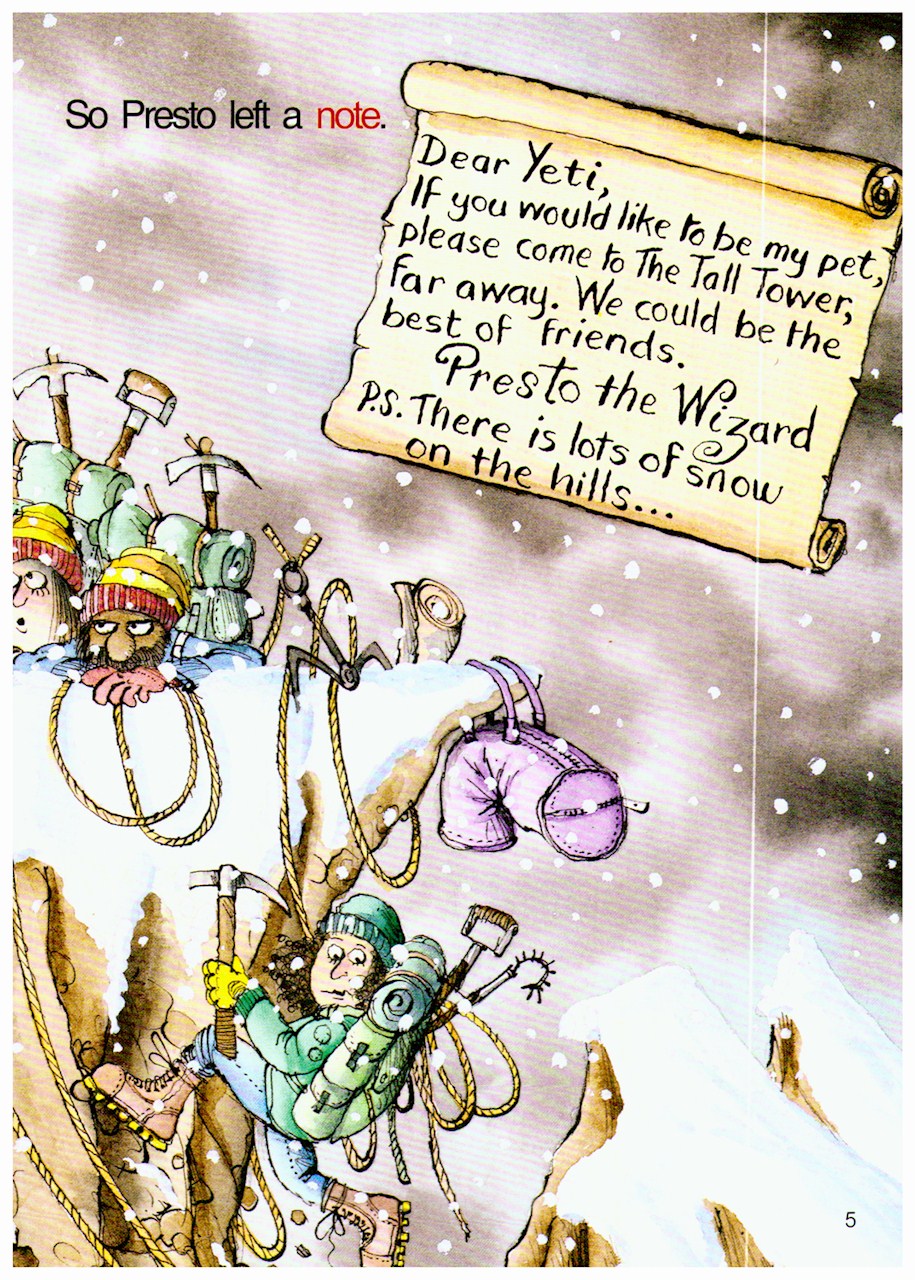 So Presto left a note.
Dear Yeti,
If you would like to be my pet,
please come to The Tall Tower,
far away. We could be the
best of friends.
Presto the Wizard
P.S. There is lots of snow
on the hills...
5